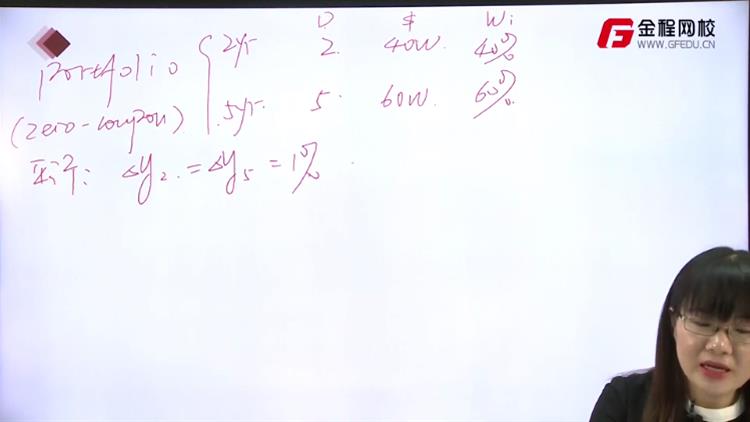 D $ Wi
金程网校
WWW.GFEDU.CN
Portfolio { 2yr 2. 40W. 40%
(zero-coupon) 5yr. 5. 60W. 60%
平行: ΔY₂ = ΔY₅ = 1%